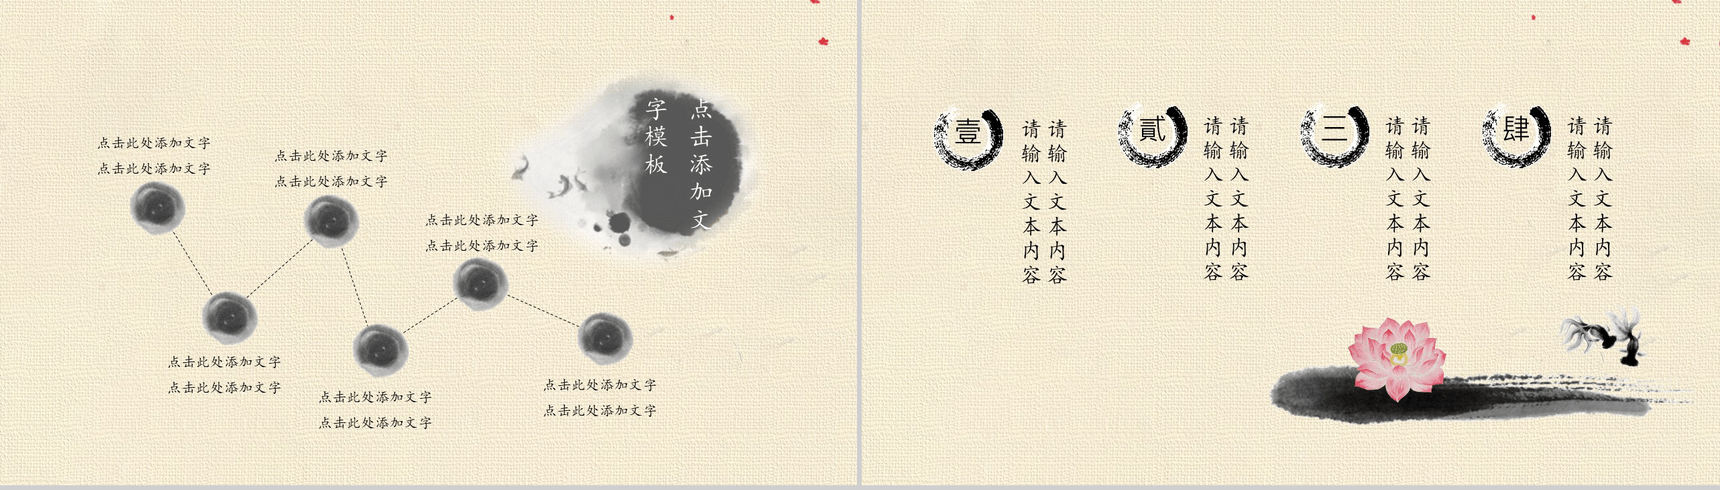 点击此处添加文字
点击此处添加文字
点击此处添加文字
点击此处添加文字
点击此处添加文字
点击此处添加文字
点击添加文
字模板
点击此处添加文字
点击此处添加文字
点击此处添加文字
点击此处添加文字
点击此处添加文字
点击此处添加文字
壹
请输入文本内容
请输入文本内容
貳
请输入文本内容
请输入文本内容
三
请输入文本内容
请输入文本内容
肆
请输入文本内容
请输入文本内容